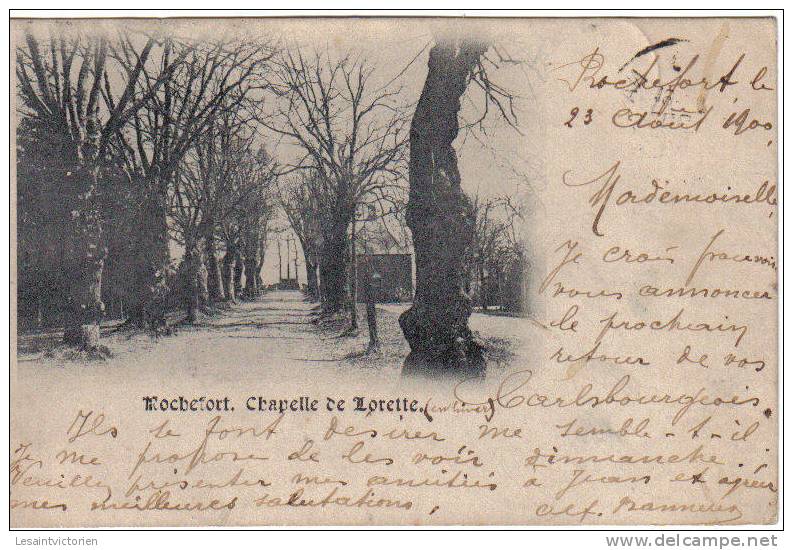 Rochefort, le
23 Août 1900
Mademoiselle,
Je crois pouvoir
vous annoncer
le prochain
retour de vos
Rochefort. Chapelle de Lorette. (en hiver)
Carlsbourgeois.
Ils se font désirer me semble-t-il.
Je me propose de les voir dimanche.
Veuillez présenter mes amitiés à Jean et agréer
mes meilleures salutations,
Alf.
Lesaintvictorien
delcampe.net